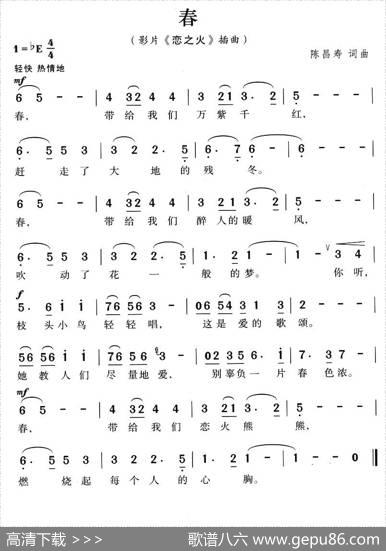 春
(影片《恋之火》插曲)
1=♭E 4/4
陈昌寿 词曲
轻快 热情地
mf
6 5 - - | 4 32 4 4 | 3 21 3. 2 | 1 - - - |
春, 带给我们 万紫千 红,
6. 5 5 3 | 3 2 2. 5 | 6. 1 2. 3 | 2 - - - |
赶 走了 大 地的 残 冬。
6 5 - - | 4 32 4 4 | 3 21 3. 2 | 1 - - - |
春, 带给我们 醉人的暖 风,
6. 5 5 3 | 3 2 2. 5 | 6. 1 2. 1 | 1 - 3 4 |
吹 动了 花 一 般的梦。 你听,
f
5. 6 i i | 76 56 3 - | 06 54 3 1 | 3 2 - - |
枝头小鸟 轻轻唱, 这是爱的 歌颂。
56 56 i i | 76 56 3 - | 02 35 6. 6 | 7. 3 5 - |
她教人们 尽量地爱, 别辜负一 片春色浓。
mf
6 5 - - | 4 32 4 4 | 3 21 3. 2 | 1 - - - |
春, 带给我们 恋火熊 熊,
6. 5 5 3 | 3 2 2. 5 | 6. 1 2. 1 | 1 - 1 0 ‖
燃 烧起 每个人的 心 胸。
高清下载 >>> 歌谱八六 www.gepu86.com